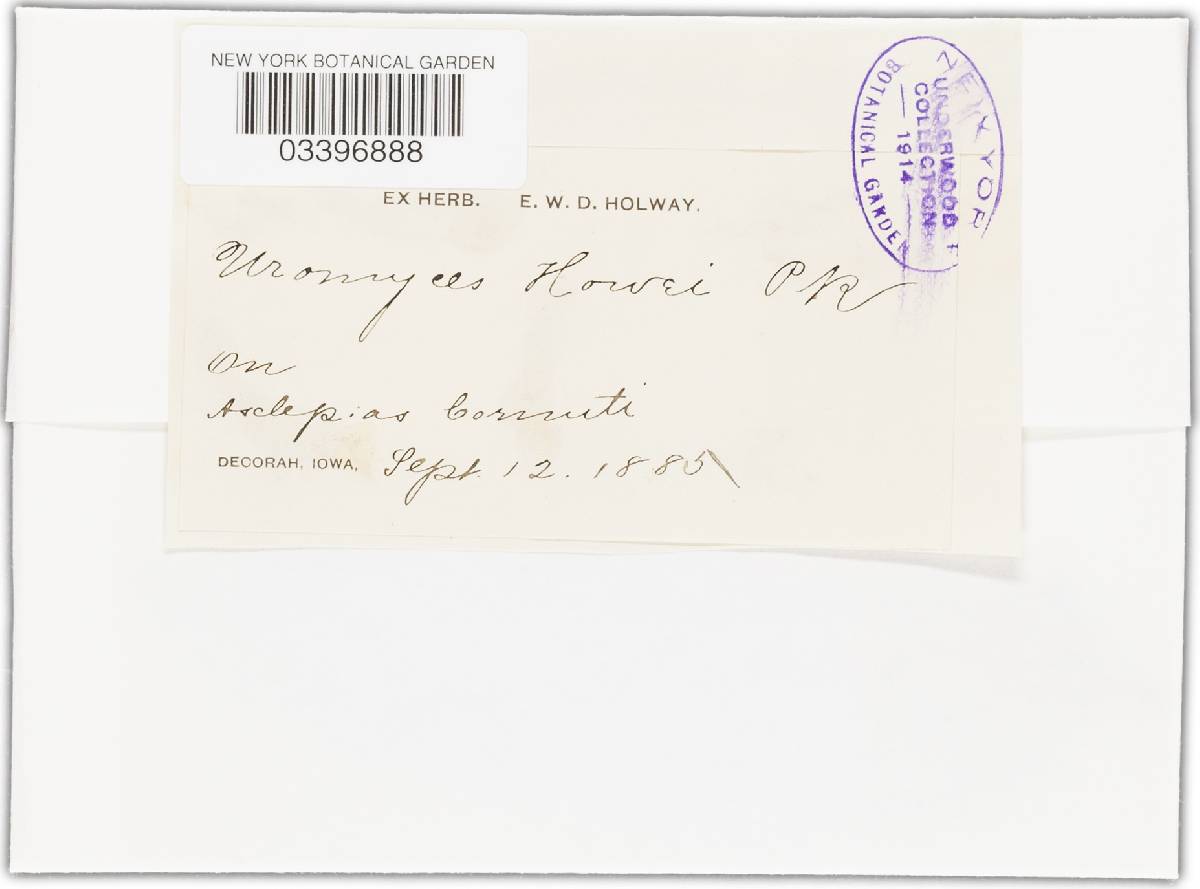 NEW YORK BOTANICAL GARDEN
03396888
NEW YOR
UNDERWOOD
COLLECTION
— 1914 —
BOTANICAL GARDEN
EX HERB. E. W. D. HOLWAY.
Uromyces Howei Pk
On
Asclepias Cornuti
DECORAH, IOWA, Sept. 12. 1885